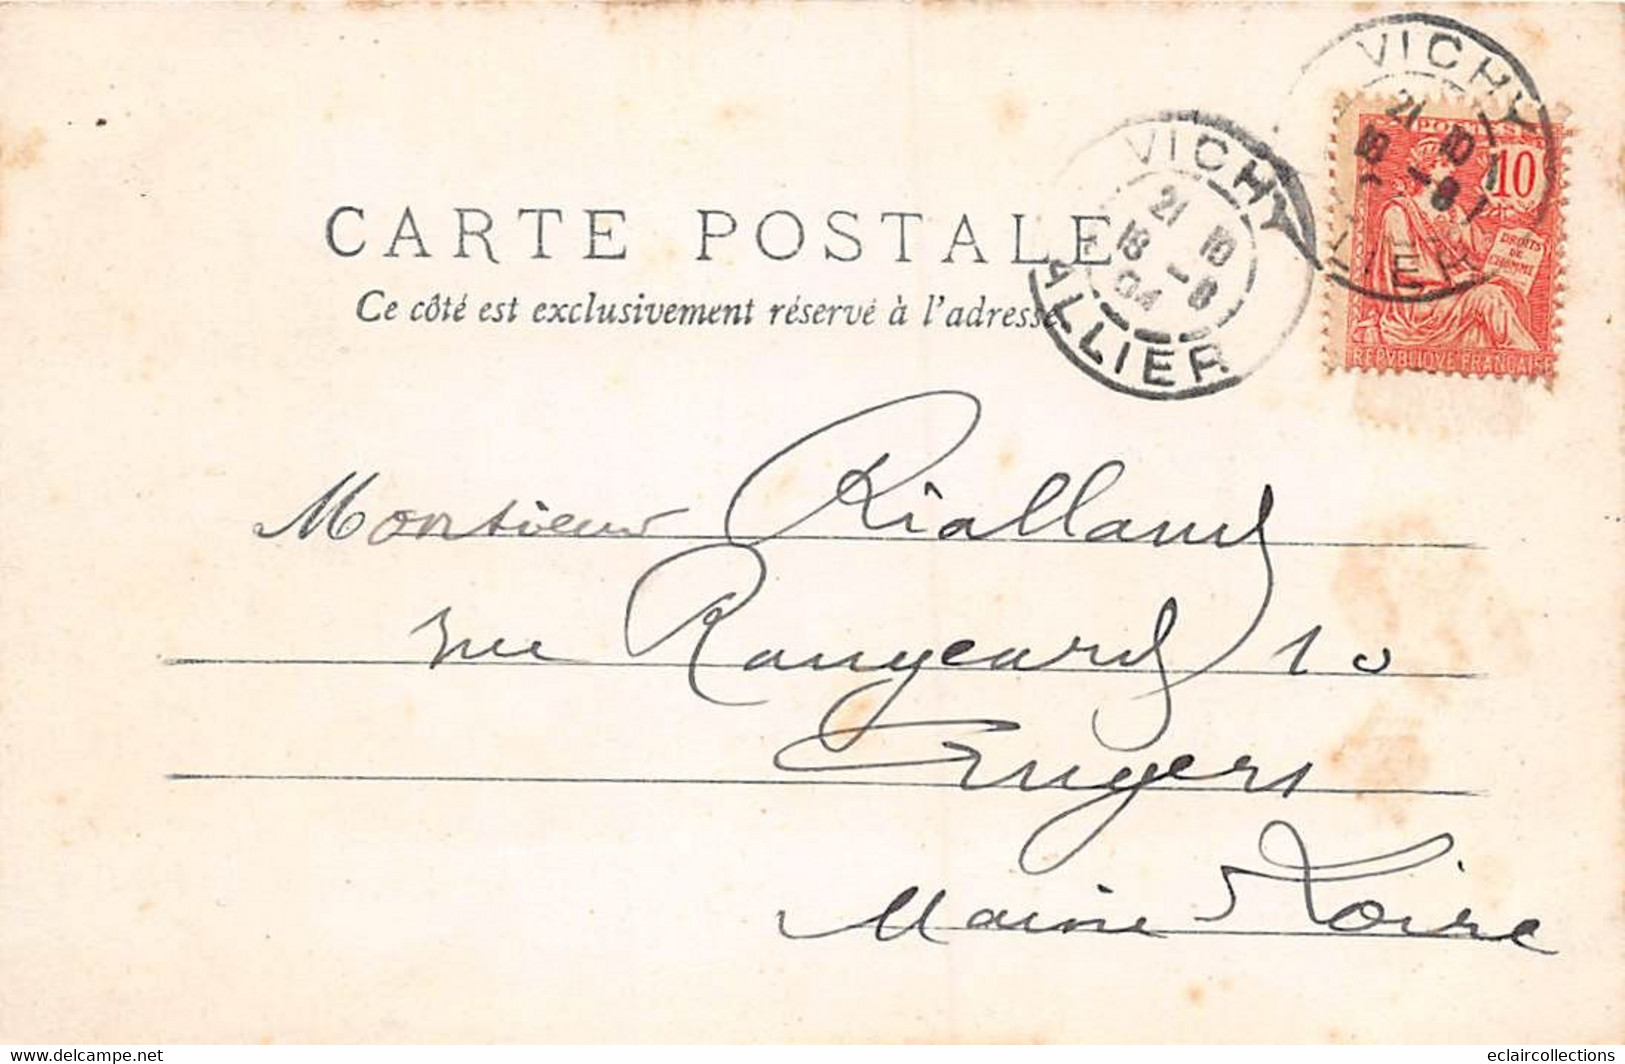 CARTE POSTALE
Ce côté est exclusivement réservé à l'adresse
VICHY
21 10
18 - 8
04
ALLIER
VICHY
21 10
18 - 8
LLIER
POSTES
10
DROITS
DE
L'HOMME
REPVBLIQVE FRANÇAISE
Monsieur Rialland
rue Rangeard 10
Angers
Maine Loire
www.delcampe.net
eclaircollections